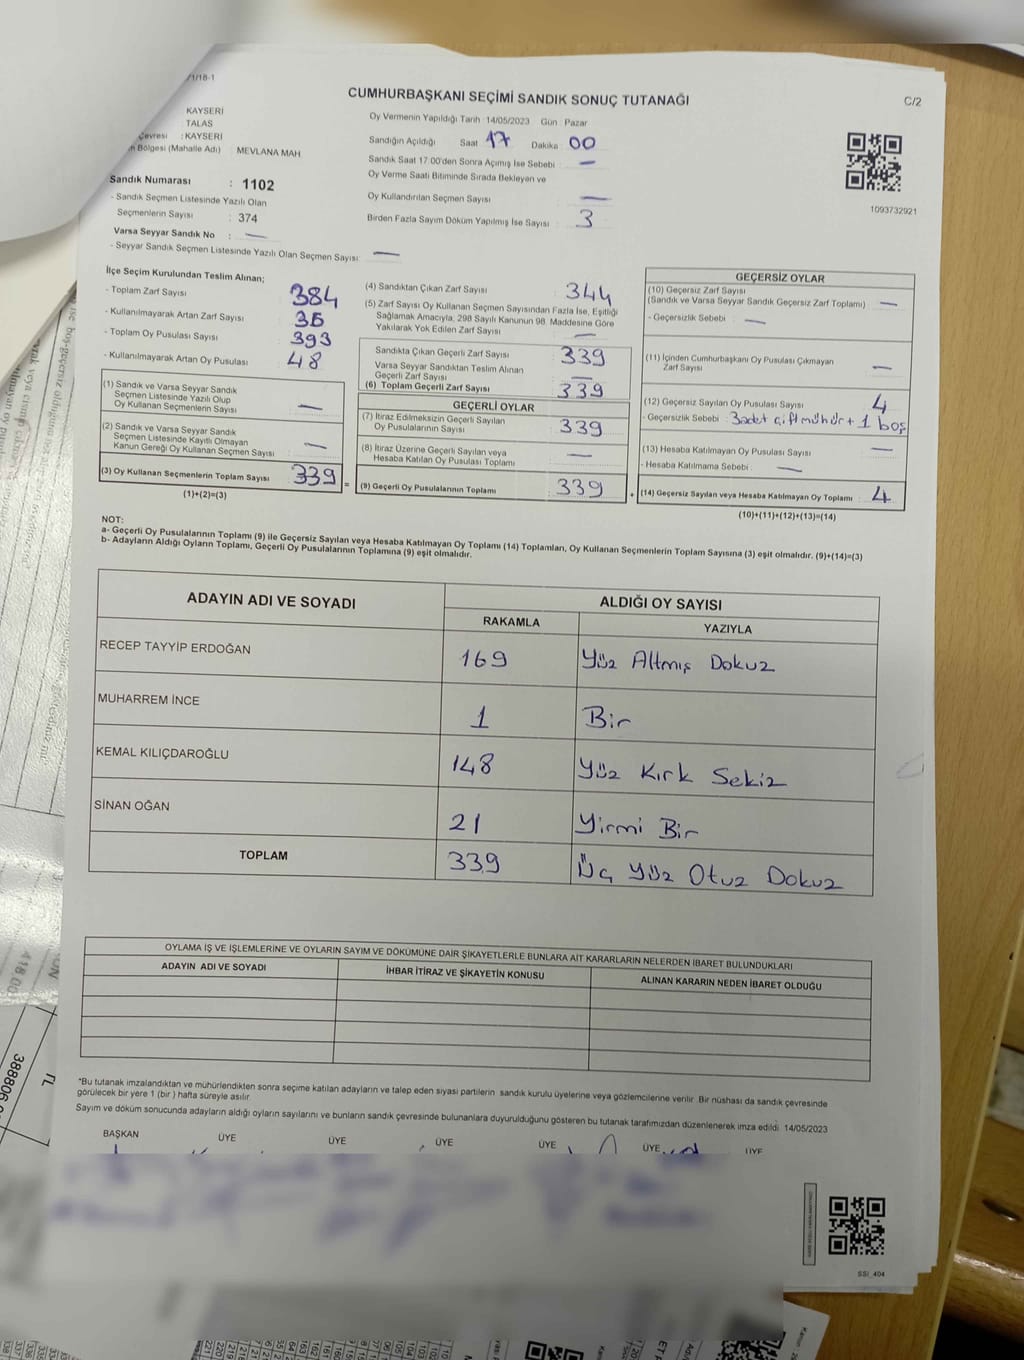 /1/18-1
CUMHURBAŞKANI SEÇİMİ SANDIK SONUÇ TUTANAĞI
C/2
KAYSERİ
TALAS
Çevresi : KAYSERİ
Bölgesi (Mahalle Adı) : MEVLANA MAH
Sandık Numarası : 1102
- Sandık Seçmen Listesinde Yazılı Olan
Seçmenlerin Sayısı : 374
Varsa Seyyar Sandık No : —
- Seyyar Sandık Seçmen Listesinde Yazılı Olan Seçmen Sayısı: —
Oy Vermenin Yapıldığı Tarih : 14/05/2023 Gün : Pazar
Sandığın Açıldığı Saat 17 Dakika 00
Sandık Saat 17:00'den Sonra Açılmış İse Sebebi : —
Oy Verme Saati Bitiminde Sırada Bekleyen ve
Oy Kullandırılan Seçmen Sayısı : —
Birden Fazla Sayım Döküm Yapılmış İse Sayısı : 3
1093732921
İlçe Seçim Kurulundan Teslim Alınan;
- Toplam Zarf Sayısı 384
- Kullanılmayarak Artan Zarf Sayısı : 35
- Toplam Oy Pusulası Sayısı : 393
- Kullanılmayarak Artan Oy Pusulası : 48
(1) Sandık ve Varsa Seyyar Sandık
Seçmen Listesinde Yazılı Olup
Oy Kullanan Seçmenlerin Sayısı : —
(2) Sandık ve Varsa Seyyar Sandık
Seçmen Listesinde Kayıtlı Olmayan
Kanun Gereği Oy Kullanan Seçmen Sayısı : —
(3) Oy Kullanan Seçmenlerin Toplam Sayısı : 339
(1)+(2)=(3)
(4) Sandıktan Çıkan Zarf Sayısı : 344
(5) Zarf Sayısı Oy Kullanan Seçmen Sayısından Fazla İse, Eşitliği
Sağlamak Amacıyla, 298 Sayılı Kanunun 98. Maddesine Göre
Yakılarak Yok Edilen Zarf Sayısı : —
Sandıkta Çıkan Geçerli Zarf Sayısı : 339
Varsa Seyyar Sandıktan Teslim Alınan
Geçerli Zarf Sayısı : —
(6) Toplam Geçerli Zarf Sayısı : 339
GEÇERLİ OYLAR
(7) İtiraz Edilmeksizin Geçerli Sayılan
Oy Pusulalarının Sayısı : 339
(8) İtiraz Üzerine Geçerli Sayılan veya
Hesaba Katılan Oy Pusulası Toplamı : —
= (9) Geçerli Oy Pusulalarının Toplamı : 339
GEÇERSİZ OYLAR
(10) Geçersiz Zarf Sayısı
(Sandık ve Varsa Seyyar Sandık Geçersiz Zarf Toplamı) : —
- Geçersizlik Sebebi : —
(11) İçinden Cumhurbaşkanı Oy Pusulası Çıkmayan
Zarf Sayısı : —
(12) Geçersiz Sayılan Oy Pusulası Sayısı : 4
- Geçersizlik Sebebi : 3adet çift mühür + 1 boş
(13) Hesaba Katılmayan Oy Pusulası Sayısı : —
- Hesaba Katılmama Sebebi : —
+ (14) Geçersiz Sayılan veya Hesaba Katılmayan Oy Toplamı : 4
(10)+(11)+(12)+(13)=(14)
NOT:
a- Geçerli Oy Pusulalarının Toplamı (9) ile Geçersiz Sayılan veya Hesaba Katılmayan Oy Toplamı (14) Toplamları, Oy Kullanan Seçmenlerin Toplam Sayısına (3) eşit olmalıdır. (9)+(14)=(3)
b- Adayların Aldığı Oyların Toplamı, Geçerli Oy Pusulalarının Toplamına (9) eşit olmalıdır.
ADAYIN ADI VE SOYADI
ALDIĞI OY SAYISI
RAKAMLA YAZIYLA
RECEP TAYYİP ERDOĞAN 169 Yüz Altmış Dokuz
MUHARREM İNCE 1 Bir
KEMAL KILIÇDAROĞLU 148 Yüz Kırk Sekiz
SİNAN OĞAN 21 Yirmi Bir
TOPLAM 339 Üç Yüz Otuz Dokuz
OYLAMA İŞ VE İŞLEMLERİNE VE OYLARIN SAYIM VE DÖKÜMÜNE DAİR ŞİKAYETLERLE BUNLARA AİT KARARLARIN NELERDEN İBARET BULUNDUKLARI
ADAYIN ADI VE SOYADI İHBAR İTİRAZ VE ŞİKAYETİN KONUSU ALINAN KARARIN NEDEN İBARET OLDUĞU
*Bu tutanak imzalandıktan ve mühürlendikten sonra seçime katılan adayların ve talep eden siyasi partilerin sandık kurulu üyelerine veya gözlemcilerine verilir. Bir nüshası da sandık çevresinde
görülecek bir yere 1 (bir ) hafta süreyle asılır.
Sayım ve döküm sonucunda adayların aldığı oyların sayılarını ve bunların sandık çevresinde bulunanlara duyurulduğunu gösteren bu tutanak tarafımızdan düzenlenerek imza edildi. 14/05/2023
BAŞKAN ÜYE ÜYE ÜYE ÜYE ÜYE ÜYE
SSI_404
418.00
TL